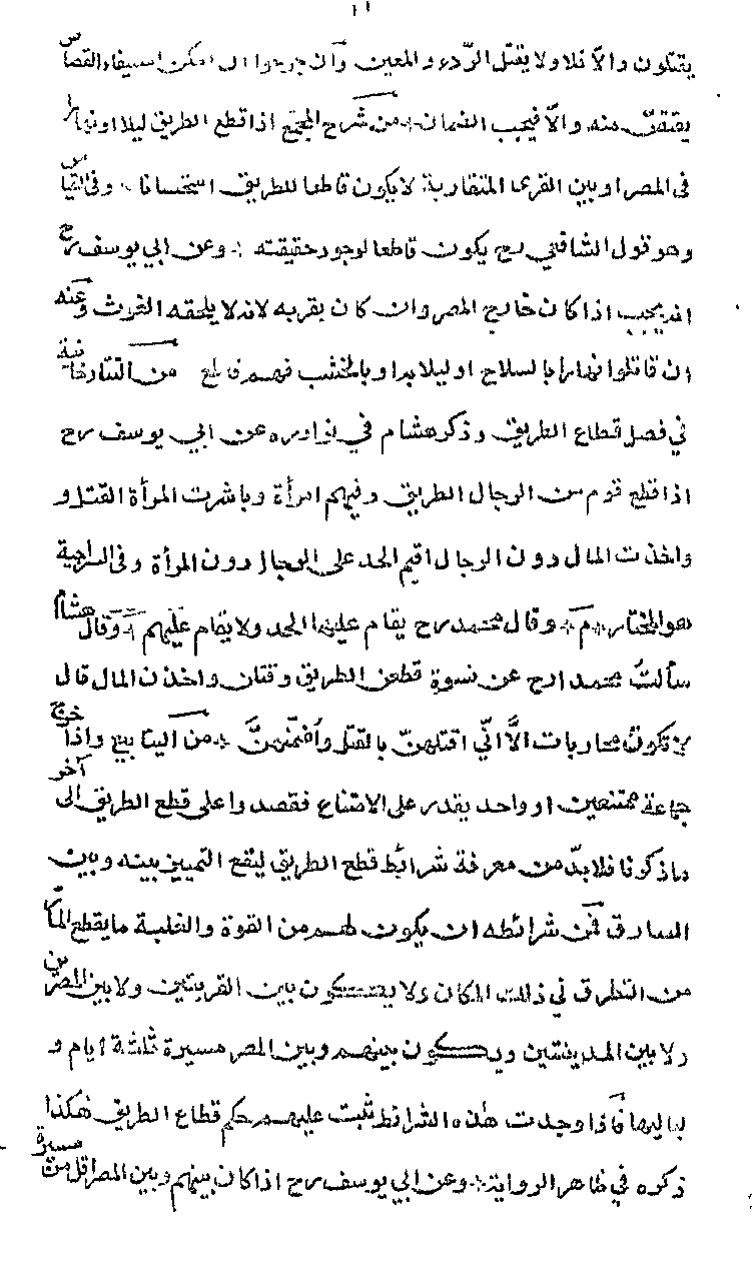 يقتلون والا فلا ولا يقتل الردء والمعين وان جرحوا ان امكن استيفاء القصاص
يقتص منه والا فيجب الضمان ٭ من شرح المجمع اذا قطع الطريق ليلا او نهارا
فى المصر او بين القرى المتقاربة لا يكون قاطعا للطريق استحسانا ٭ وفى القياس
وهو قول الشافعي رح يكون قاطعا لوجود حقيقته ٭ وعن ابي يوسف رح
انه يجب اذا كان خارج المصر وان كان بقربه لانه لا يلحقه الغوث وعنه
ان قاتلوا نهارا بالسلاح او ليلا به او بالخشب فهم قطاع من التتارخانية
في فصل قطاع الطريق وذكر هشام في نوادره عن ابي يوسف رح
اذا قطع قوم من الرجال الطريق وفيهم امرأة وباشرت المرأة القتل و
واخذت المال دون الرجال اقيم الحد على الرجال دون المرأة وفى السراجية
هو المختار ٭ م ٭ وقال محمد رح يقام عليها الحد ولا يقام عليهم ٭ وقال هشام
سألت محمدا رح عن نسوة قطعن الطريق وقتلن واخذن المال قال
لا تكون محاربات الا اني اقتلهن بالقتل واضمنهن ٭ من الينابيع واذا خرج
جماعة ممتنعين او واحد يقدر على الامتناع فقصدوا على قطع الطريق الى آخر
ما ذكرنا فلا بد من معرفة شرائط قطع الطريق ليقع التمييز بينه وبين
السارق فمن شرائطه ان يكون لهم من القوة والغلبة ما يقطع المارة
من التطرق في ذلك المكان ولا يكون بين القريتين ولا بين المصرين
ولا بين المدينتين ويكون بينهم وبين المصر مسيرة ثلثة ايام و
لياليها فاذا وجدت هذه الشرائط ثبت عليهم حكم قطاع الطريق هكذا
ذكره في ظاهر الرواية ٭ وعن ابي يوسف رح اذا كان بينهم وبين المصر اقل من مسيرة